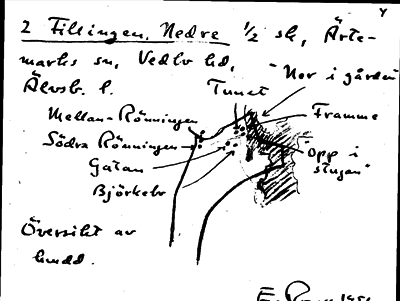 2 Fillingen, Nedre 1/2 sk, Ärte-
marks sn, Vedbo hd,
Älvsb. l.
"Nor i gården
Tunet
Framme
Mellan-Rönningen
Södra Rönningen
Gatan
"Opp i
stugan"
Björkebr
Översikt av
E.